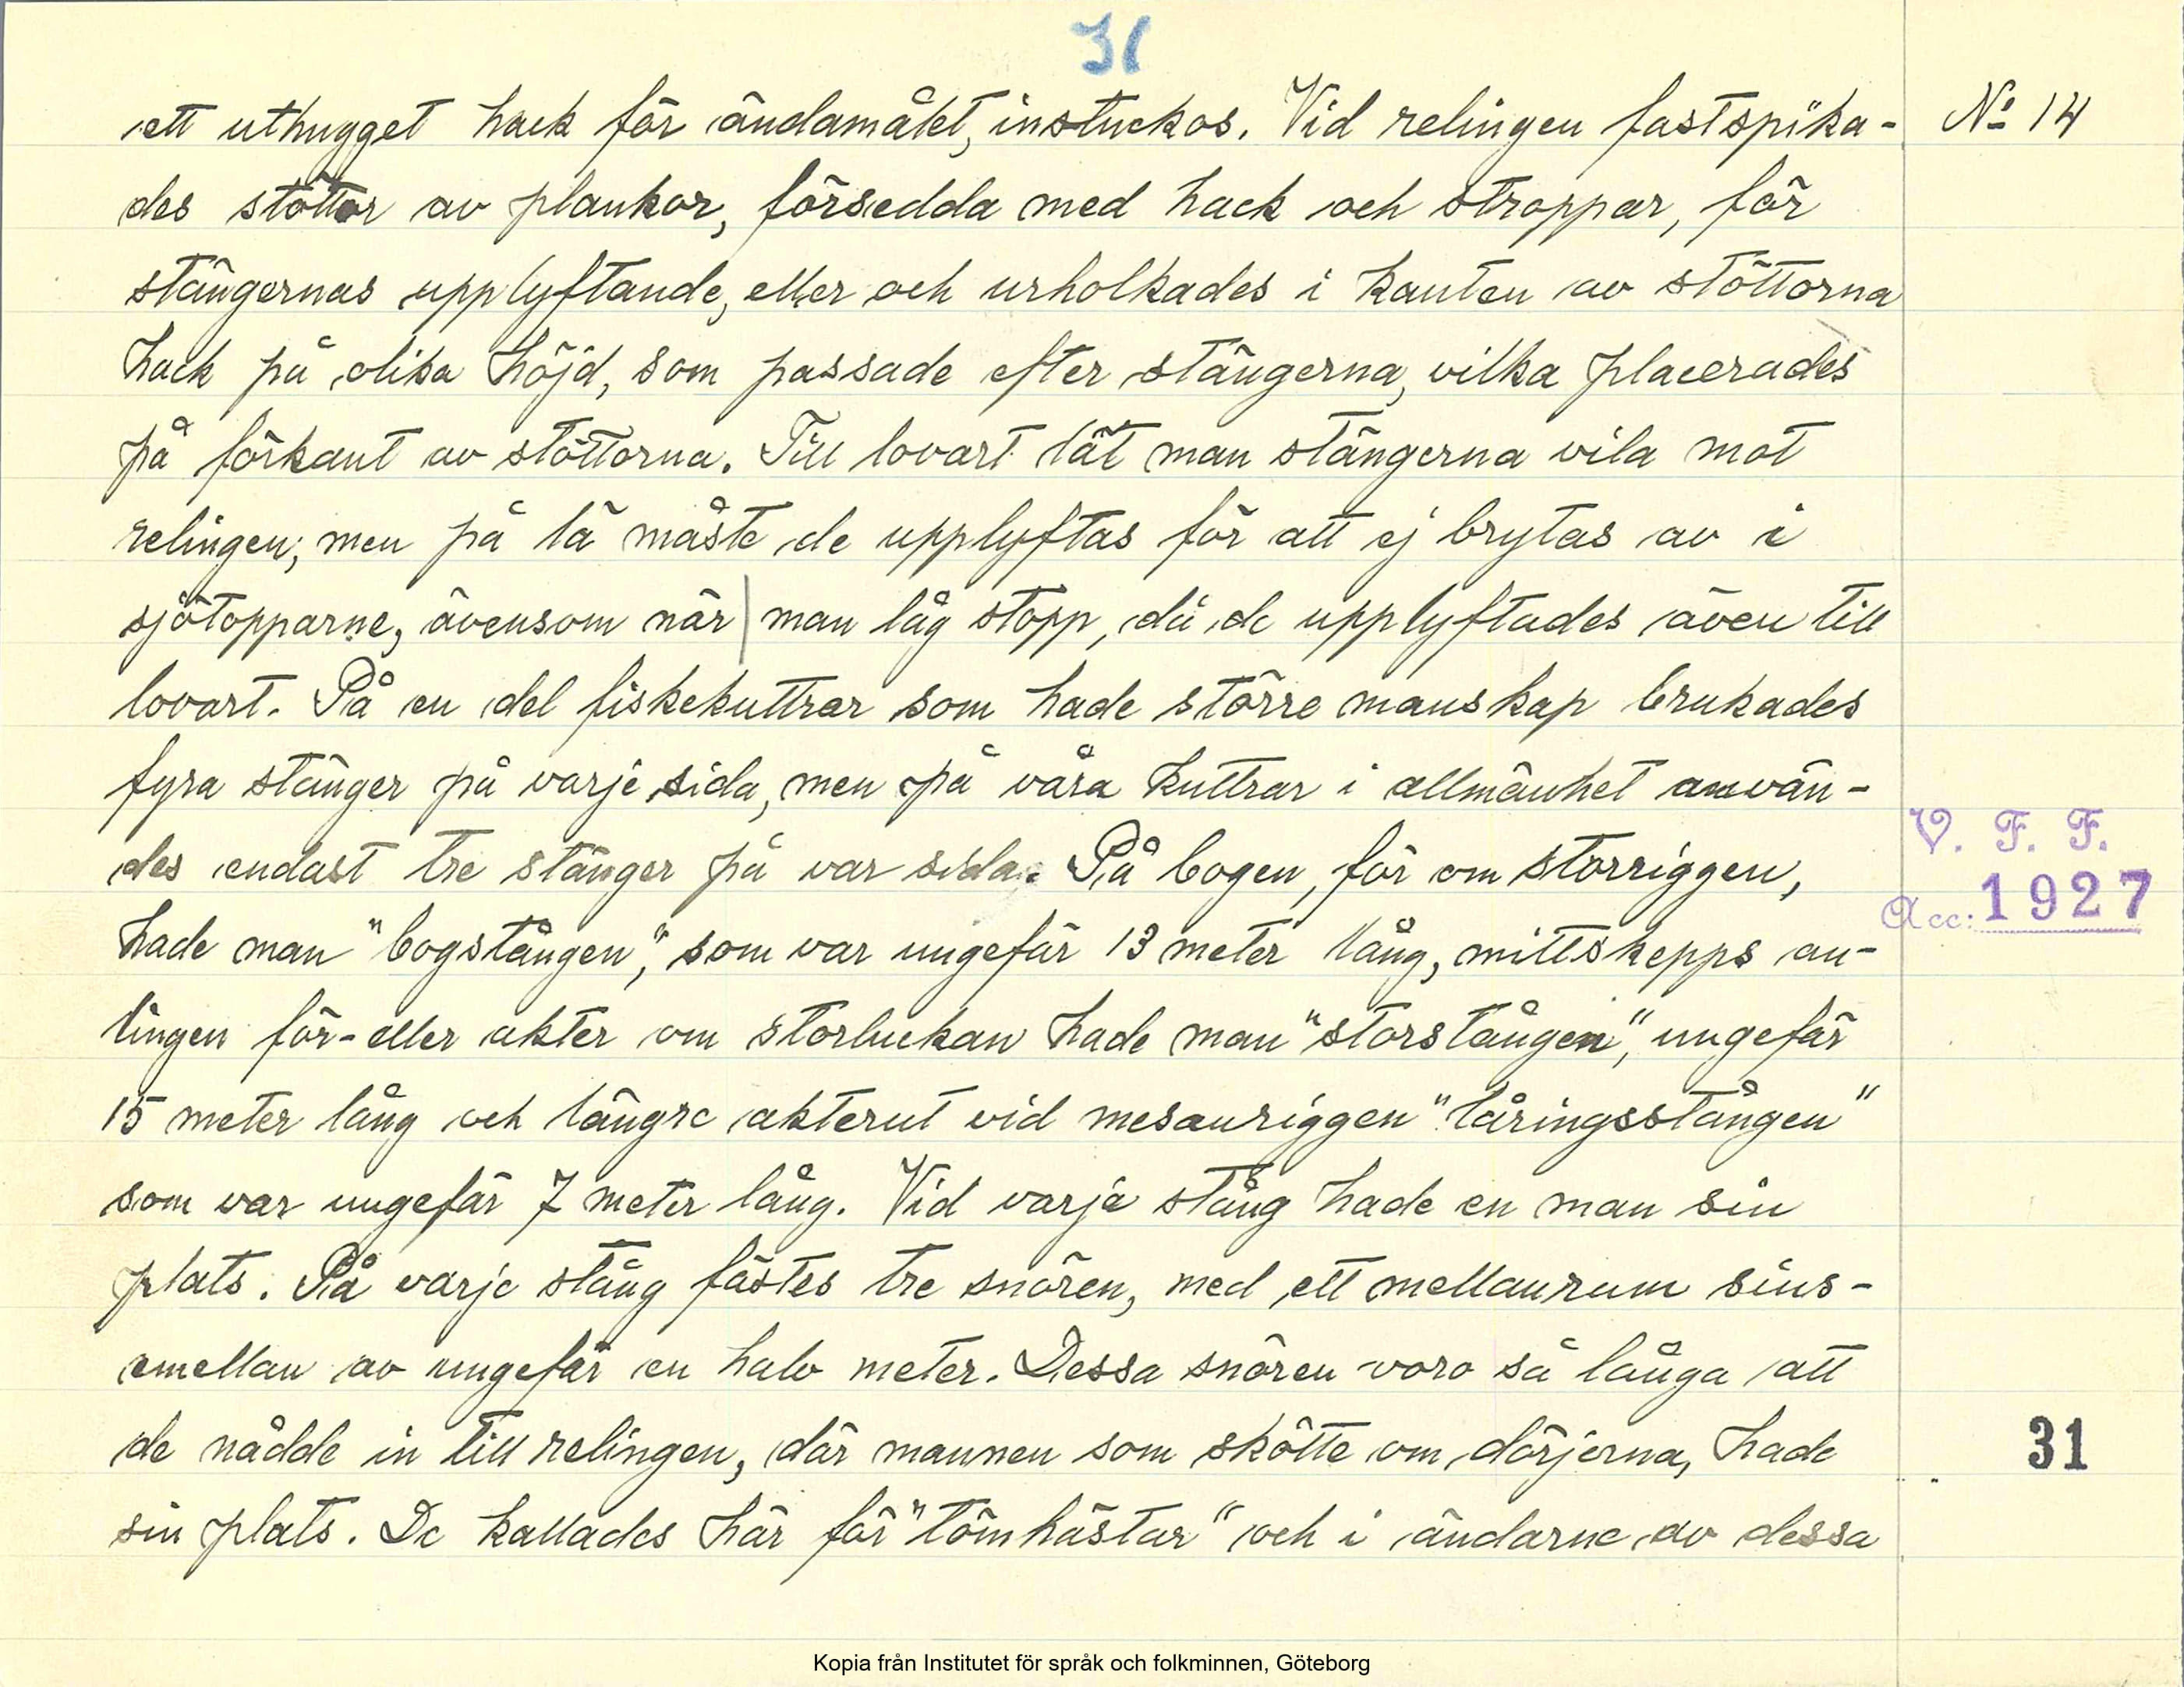 31
ett uthugget hack för ändamålet, instuckos. Vid relingen fastspika- No 14
des stöttor av plankor, försedda med hack och stroppar, för
stängernas upplyftande, eller och urholkades i kanten av stöttorna
hack på olika höjd, som passade efter stängerna, vilka placerades
på förkant av stöttorna. Till lovart lät man stängerna vila mot
relingen; men på lä måste de upplyftas för att ej brytas av i
sjötopparne, ävensom när man låg stopp, då de upplyftades även till
lovart. På en del fiskekuttrar som hade större manskap brukades
fyra stänger på varje sida, men på våra kuttrar i allmänhet använ-
des endast tre stänger på var sida. På bogen, för om storriggen,
V. F. F.
Acc: 1927
hade man "bogstången", som var ungefär 13 meter lång, mittskepps an-
tingen för- eller akter om storluckan hade man "storstången", ungefär
15 meter lång och längre akterut vid mesanriggen "låringsstången"
som var ungefär 7 meter lång. Vid varje stång hade en man sin
plats. På varje stång fästes tre snören, med ett mellanrum sins-
emellan av ungefär en halv meter. Dessa snören voro så långa att
de nådde in till relingen, där mannen som skötte om dörjerna, hade
31
sin plats. De kallades här för "tömhästar" och i ändarne av dessa
Kopia från Institutet för språk och folkminnen, Göteborg